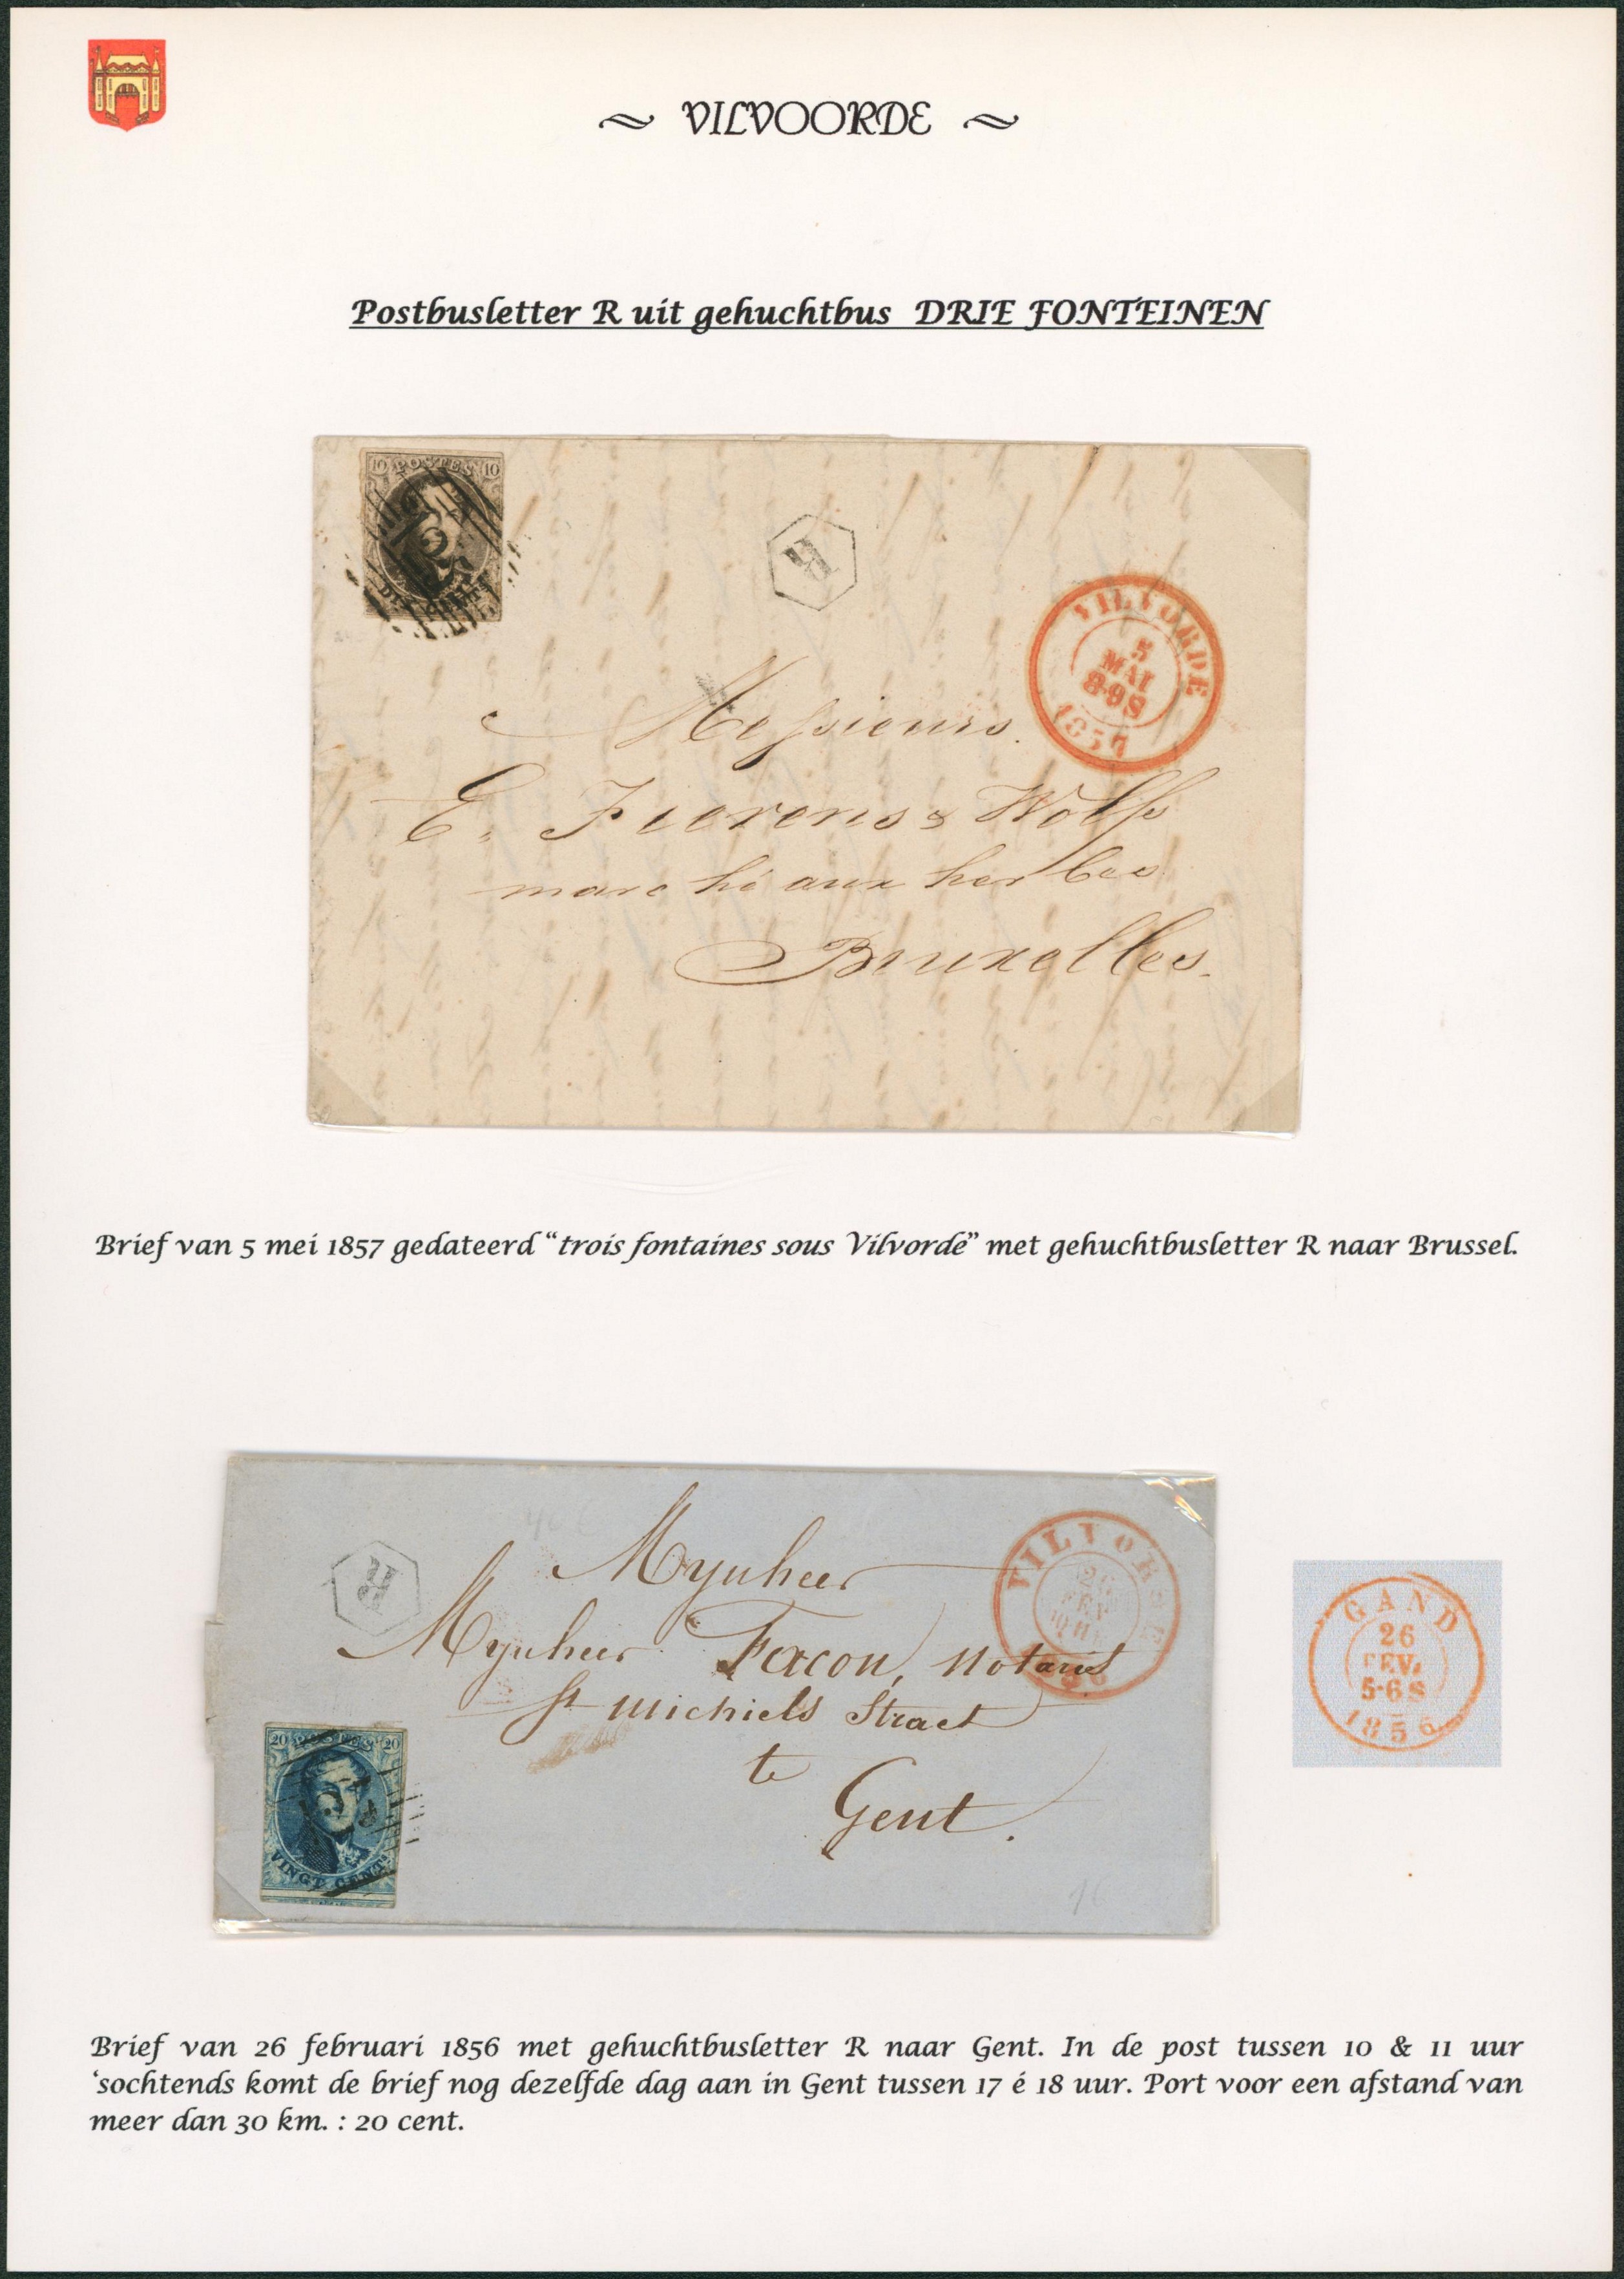 ~ VILVOORDE ~
Postbusletter R uit gehuchtbus DRIE FONTEINEN
10 POSTES 10
R
VILVORDE
5
MAI
8-9S
1857
Messieurs
E. Fierens & Wolfs
marché aux herbes
Bruxelles.
Brief van 5 mei 1857 gedateerd “trois fontaines sous Vilvorde” met gehuchtbusletter R naar Brussel.
R
Mynheer
Mynheer Facon, Notaris
St Michiels Straet
te
Gent.
20 POSTES 20
VINGT CENTS
GAND
26
FEV.
5-6S
1856
Brief van 26 februari 1856 met gehuchtbusletter R naar Gent. In de post tussen 10 & 11 uur
‘sochtends komt de brief nog dezelfde dag aan in Gent tussen 17 é 18 uur. Port voor een afstand van
meer dan 30 km. : 20 cent.